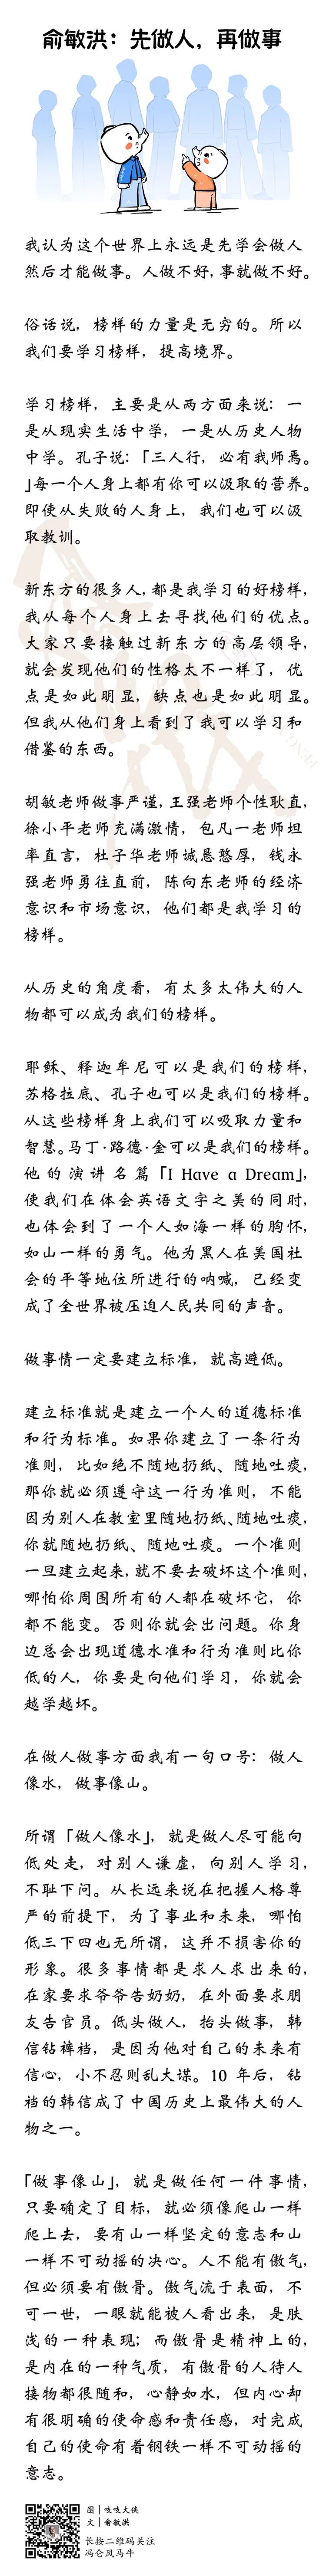 俞敏洪：先做人，再做事
我认为这个世界上永远是先学会做人
然后才能做事。人做不好，事就做不好。
俗话说，榜样的力量是无穷的。所以
我们要学习榜样，提高境界。
学习榜样，主要是从两方面来说：一
是从现实生活中学，一是从历史人物
中学。孔子说：「三人行，必有我师焉。
」每一个人身上都有你可以汲取的营养。
即使从失败的人身上，我们也可以汲
取教训。
新东方的很多人，都是我学习的好榜样，
我从每个人身上去寻找他们的优点。
大家只要接触过新东方的高层领导，
就会发现他们的性格太不一样了，优
点是如此明显，缺点也是如此明显。
但我从他们身上看到了我可以学习和
借鉴的东西。
胡敏老师做事严谨，王强老师个性耿直，
徐小平老师充满激情，包凡一老师坦
率直言，杜子华老师诚恳憨厚，钱永
强老师勇往直前，陈向东老师的经济
意识和市场意识，他们都是我学习的
榜样。
从历史的角度看，有太多太伟大的人
物都可以成为我们的榜样。
耶稣、释迦牟尼可以是我们的榜样，
苏格拉底、孔子也可以是我们的榜样。
从这些榜样身上我们可以吸取力量和
智慧。马丁·路德·金可以是我们的榜样。
他的演讲名篇「I Have a Dream」，
使我们在体会英语文字之美的同时，
也体会到了一个人如海一样的胸怀，
如山一样的勇气。他为黑人在美国社
会的平等地位所进行的呐喊，已经变
成了全世界被压迫人民共同的声音。
做事情一定要建立标准，就高避低。
建立标准就是建立一个人的道德标准
和行为标准。如果你建立了一条行为
准则，比如绝不随地扔纸、随地吐痰，
那你就必须遵守这一行为准则，不能
因为别人在教室里随地扔纸、随地吐痰，
你就随地扔纸、随地吐痰。一个准则
一旦建立起来，就不要去破坏这个准则，
哪怕你周围所有的人都在破坏它，你
都不能变。否则你就会出问题。你身
边总会出现道德水准和行为准则比你
低的人，你要是向他们学习，你就会
越学越坏。
在做人做事方面我有一句口号：做人
像水，做事像山。
所谓「做人像水」，就是做人尽可能向
低处走，对别人谦虚，向别人学习，
不耻下问。从长远来说在把握人格尊
严的前提下，为了事业和未来，哪怕
低三下四也无所谓，这并不损害你的
形象。很多事情都是求人求出来的，
在家要求爷爷告奶奶，在外面要求朋
友告官员。低头做人，抬头做事，韩
信钻裤裆，是因为他对自己的未来有
信心，小不忍则乱大谋。10 年后，钻
裆的韩信成了中国历史上最伟大的人
物之一。
「做事像山」，就是做任何一件事情，
只要确定了目标，就必须像爬山一样
爬上去，要有山一样坚定的意志和山
一样不可动摇的决心。人不能有傲气，
但必须要有傲骨。傲气流于表面，不
可一世，一眼就能被人看出来，是肤
浅的一种表现；而傲骨是精神上的，
是内在的一种气质，有傲骨的人待人
接物都很随和，心静如水，但内心却
有很明确的使命感和责任感，对完成
自己的使命有着钢铁一样不可动摇的
意志。
图｜吱吱大侠
文｜俞敏洪
长按二维码关注
冯仑风马牛